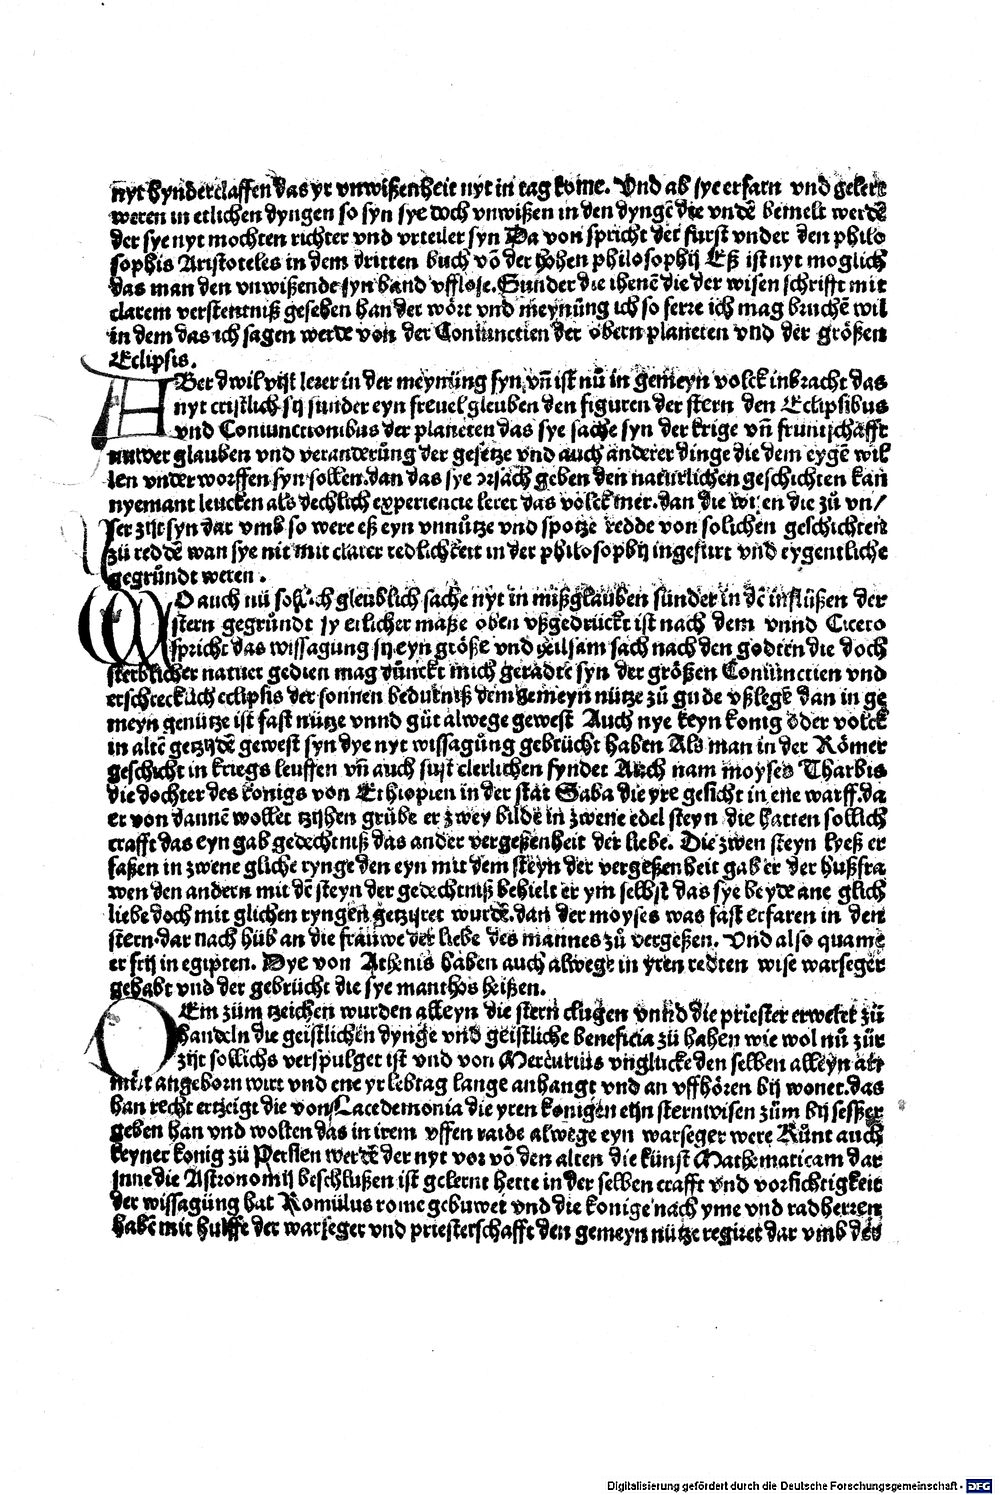 nyt hynderclaffen das yr vnwißenheit nyt in tag kome. Vnd ab sye erfarn vnd gelert
weren in etlichen dyngen so syn sye doch vnwißen in den dyngē die vndē bemelt werdē
der sye nyt mochten richter vnd vrteiler syn Da von spricht der furst vnder den philo
sophis Aristoteles in dem dritten buch vō der hohen philosophij Eß ist nyt moglich
das man den vnwißende syn band vfflose. Sunder die ihenē die der wisen schrifft mit
clarem verstentniß gesehen han der wort vnd meynüng ich so ferre ich mag bruchē wil
in dem das ich sagen werde von der Coniunctien der obern planeten vnd der größen
Eclipsis.
ABer dwil vijl lerer in der meynüng syn vn̄ ist nů in gemeyn volck inbracht das
nyt cristlich sij sunder eyn freuel gleuben den figuren der stern den Eclipsibus
vnd Coniunctionibus der planeten das sye sache syn der krige vn̄ fruntschafft
nuwer glauben vnd veranderüng der gesetze vnd auch anderer dinge die dem eygē wil
len vnder worffen syn sollen. dan das sye vrsach geben den naturlichen geschichten kan
nyemant leucken als dechlich experiencie leret das volck mer. dan die wisen die zů vn/
ser zijt syn dar vmb so were eß eyn vnnůtze vnd spotze redde von solichen geschichten
zü reddē wan sye nit mit clarer redlichkeit in der philosophij ingefurt vnd eygentliche
gegründt weren.
WO auch nü sollich gleublich sache nyt in mißglauben sünder in dē inflüßen der
stern gegründt sy etlicher maße oben vßgedrückt ist nach dem vnnd Cicero
spricht das wissagung sij eyn größe vnd heilsam sach nach den godten die doch
sterblicher natuer gedien mag dünckt mich geradte syn der größen Coniunctien vnd
erschrecklich eclipsis der sonnen bedutniß dem gemeyn nütze zü gude vßlegē dan in ge
meyn genütze ist fast nütze vnnd güt alwege gewest Auch nye keyn konig oder volck
in altē getzijdē gewest syn dye nyt wissagüng gebrücht haben Als man in der Römer
geschicht in kriegs leuffen vn̄ auch sust clerlichen fyndet Auch nam moyses Tharbis
die dochter des konigs von Ethiopien in der stat Saba die yre gesicht in ene warff. da
er von dannē wollet tzijhen grübe er zwey bildē in zwene edel steyn die hatten sollich
crafft das eyn gab gedechtniß das ander vergeßenheit der liebe. Die zwen steyn lyeß er
faßen in zwene gliche rynge den eyn mit dem steyn der vergeßenheit gab er der hußfra
wen den andern mit dē steyn der gedechtniß behielt er ym selbst das sye beyde ane glich
liebe doch mit glichen ryngen getzijret wurdē. dan der moyses was fast erfaren in den
stern. dar nach hüb an die fraüwe der liebe des mannes zů vergeßen. Vnd also quame
er frij in egipten. Dye von Athenis haben auch alwege in yren redten wise warseger
gehabt vnd der gebrücht die sye manthos heißen.
DEm züm tzeichen wurden alleyn die stern clugen vnnd die priester erwelet zü
handeln die geistlichen dynge vnd geistliche beneficia zü hahen wie wol nů zür
zijt sollichs verspulget ist vnd von Mercurius vnglucke den selben alleyn ar
müt angeborn wirt vnd ene yr lebtag lange anhangt vnd an vffhören bij wonet. das
han recht ertzeigt die von Lacedemonia die yren konigen eijn sternwisen züm bij sesßer
geben han vnd wolten das in irem vffen raide alwege eyn warseger were Kůnt auch
keyner konig zü Persien werdē der nyt vor vō den alten die kůnst Mathematicam dar
jnne die Astronomij beschlußen ist gelernt hette in der selben crafft vnd vorsichtigkeit
der wissagüng hat Romülus rome gebuwet vnd die konige nach yme vnd radherren
habē mit hulffe der warseger vnd priesterschafft den gemeyn nütze regiret dar vmb des
Digitalisierung gefördert durch die Deutsche Forschungsgemeinschaft - DFG